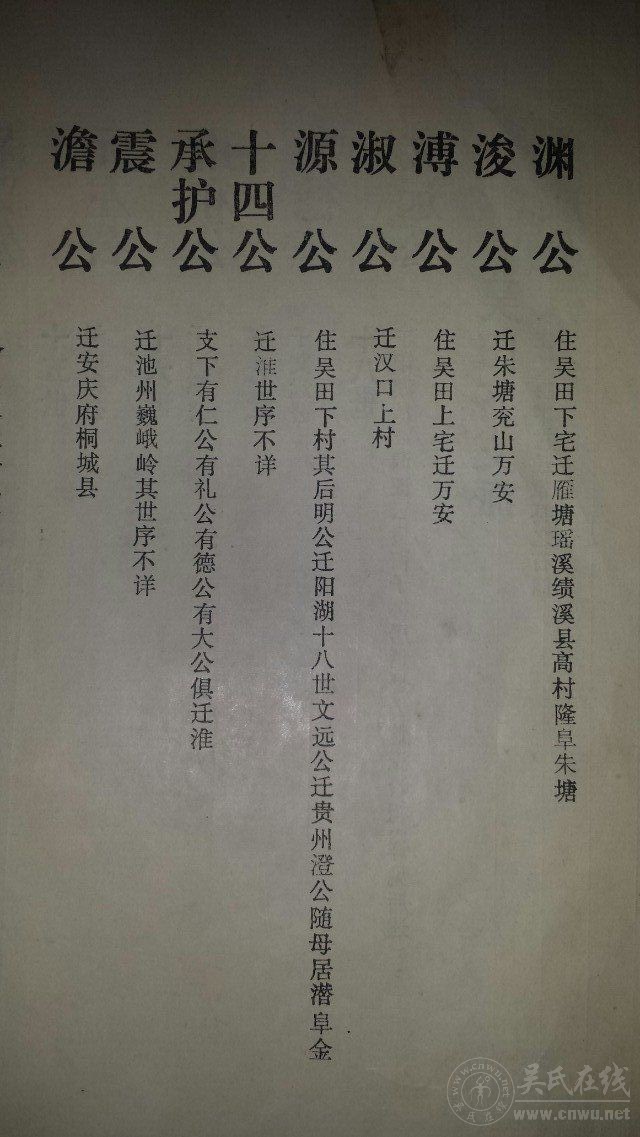 渊公 住吴田下宅迁雁塘瑶溪绩溪县高村隆阜朱塘
浚公 迁朱塘兖山万安
溥公 住吴田上宅迁万安
淑公 迁汉口上村
源公 住吴田下村其后明公迁阳湖十八世文远公迁贵州澄公随母居潜阜金
十四公 迁淮世序不详
承护公 支下有仁公有礼公有德公有大公俱迁淮
震公 迁池州巍峨岭其世序不详
澹公 迁安庆府桐城县
吴氏在线
www.cnwu.net